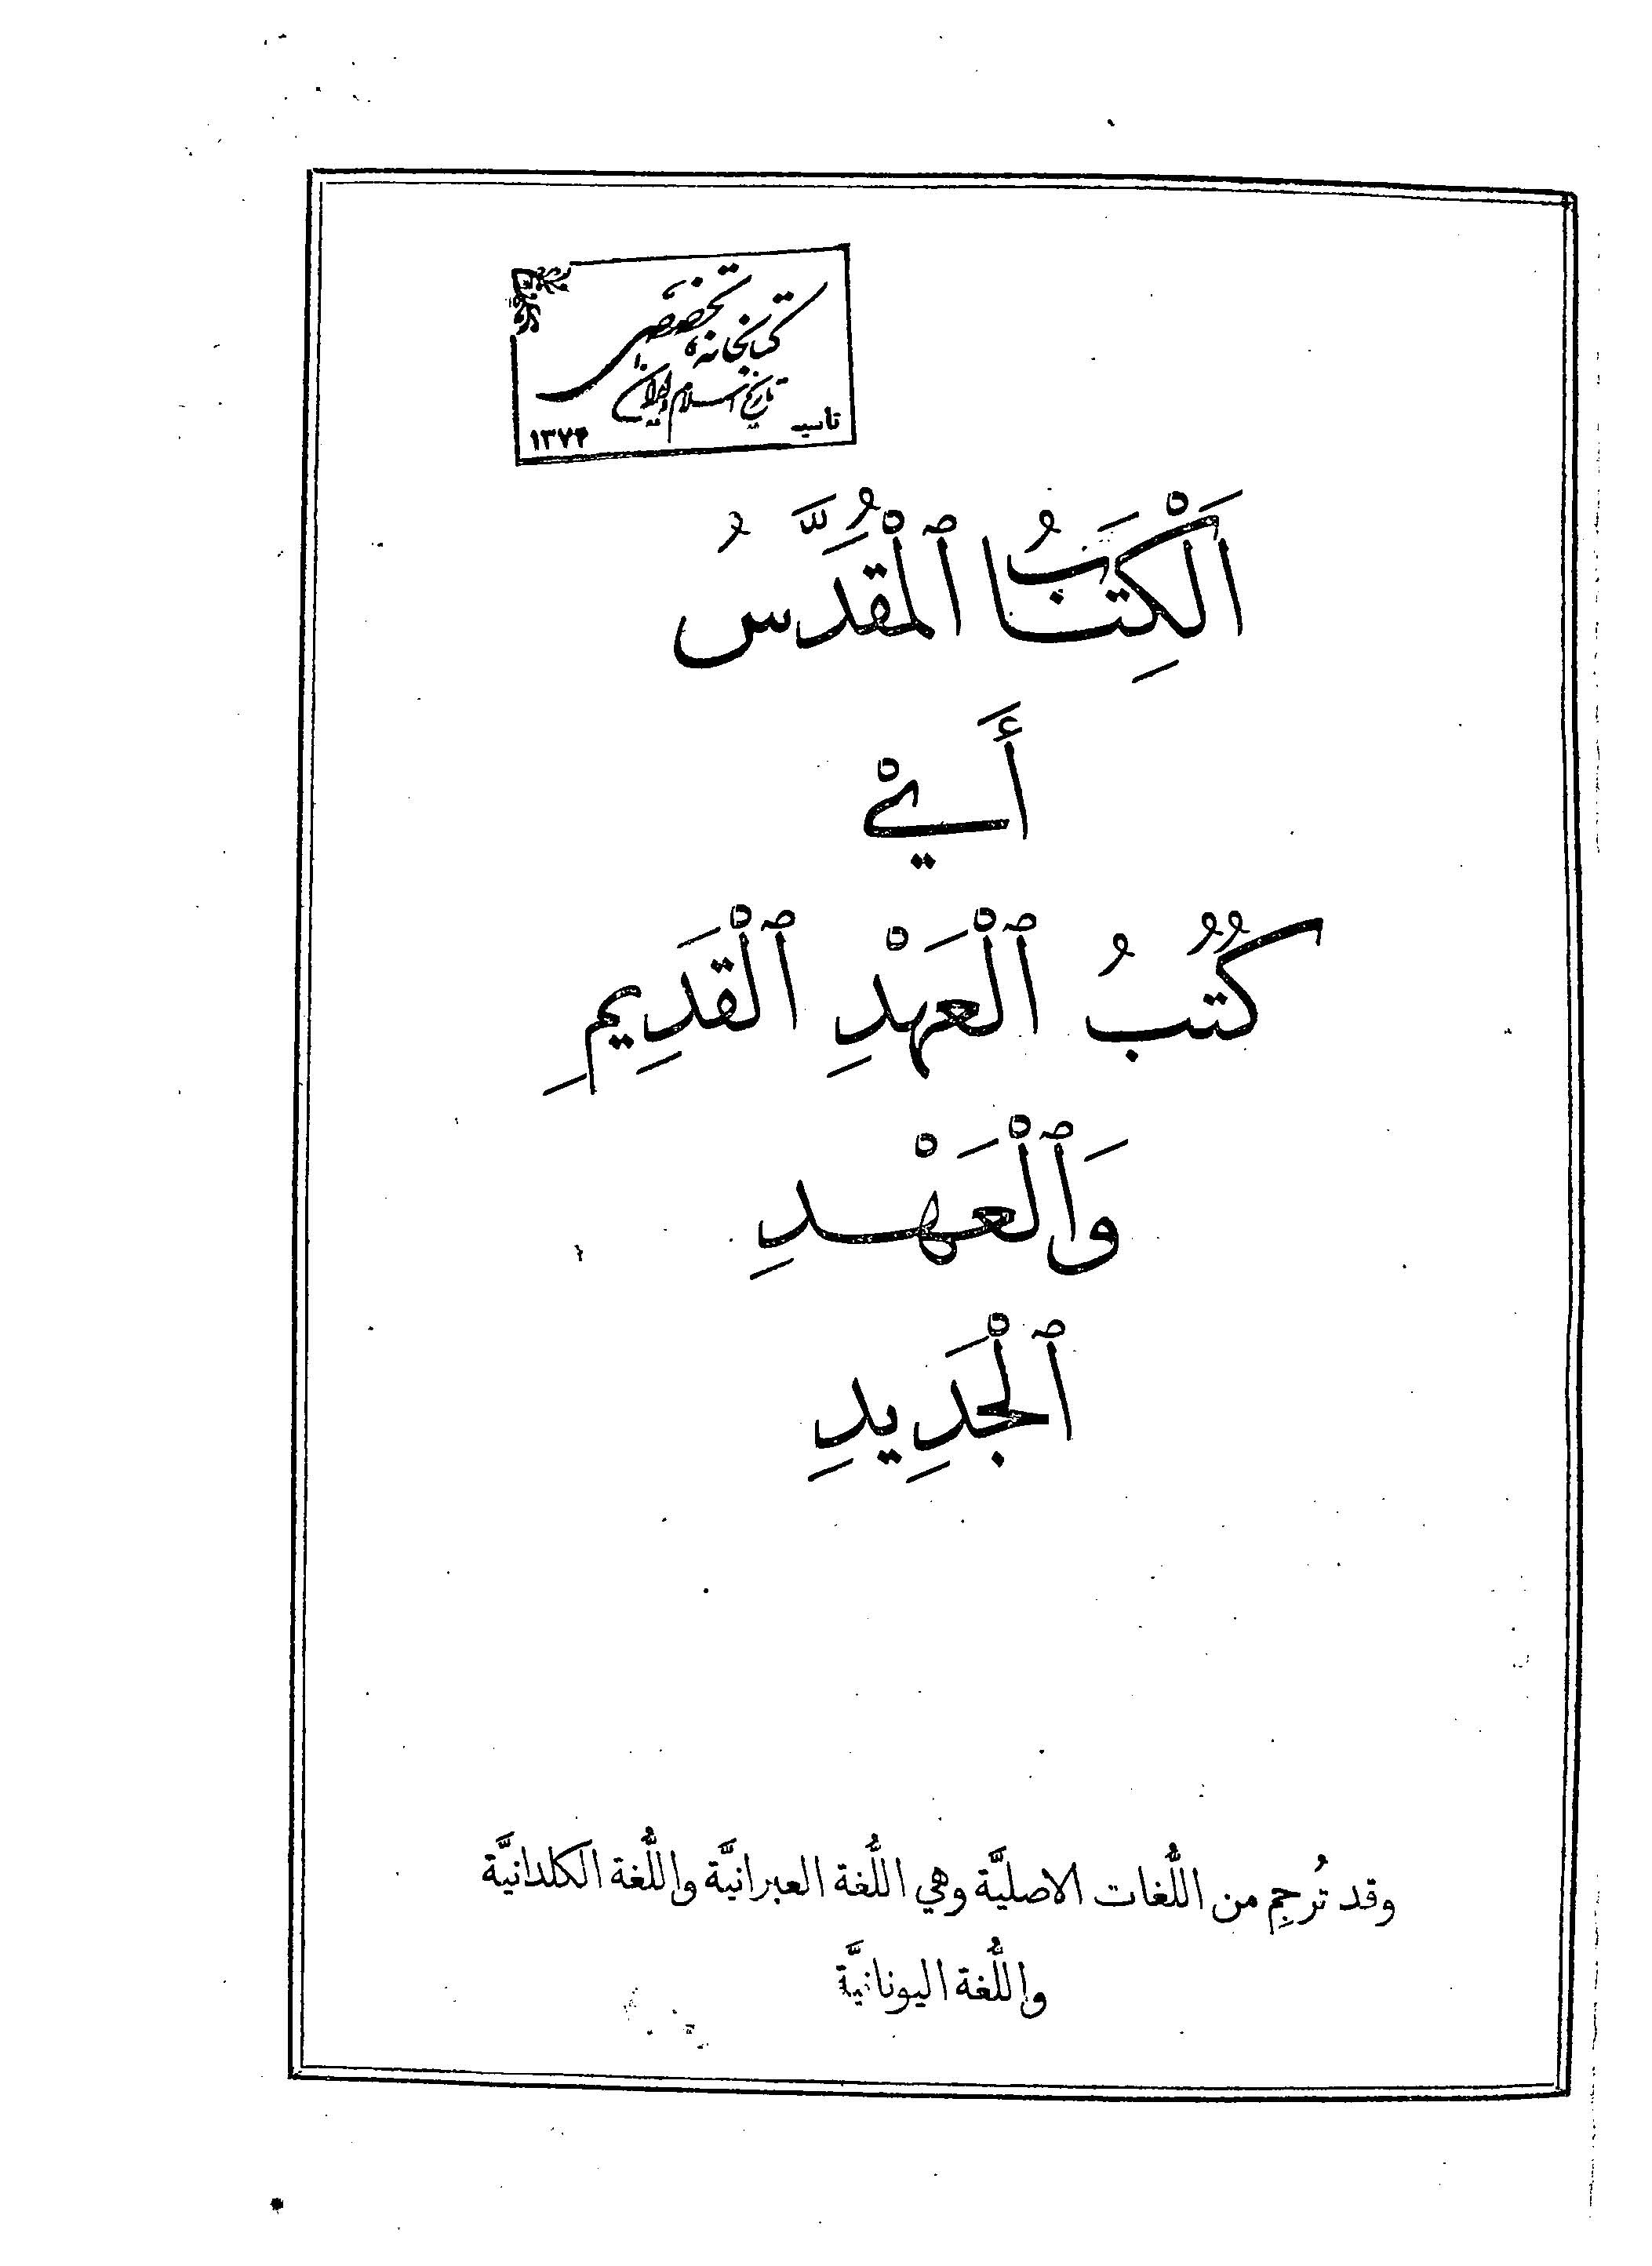 كتابخانه تخصصى
تاريخ اسلام و ايران
تأسيس ١٣٧۴
اَلْكِتَابُ ٱلْمُقَدَّسُ
أَيْ
كُتُبُ ٱلْعَهْدِ ٱلْقَدِيمِ
وَٱلْعَهْدِ
ٱلْجَدِيدِ
وقد تُرجِم من اللُّغات الاصليَّة وهي اللُّغة العبرانيَّة واللُّغة الكلدانيَّة
واللُّغة اليونانيَّة